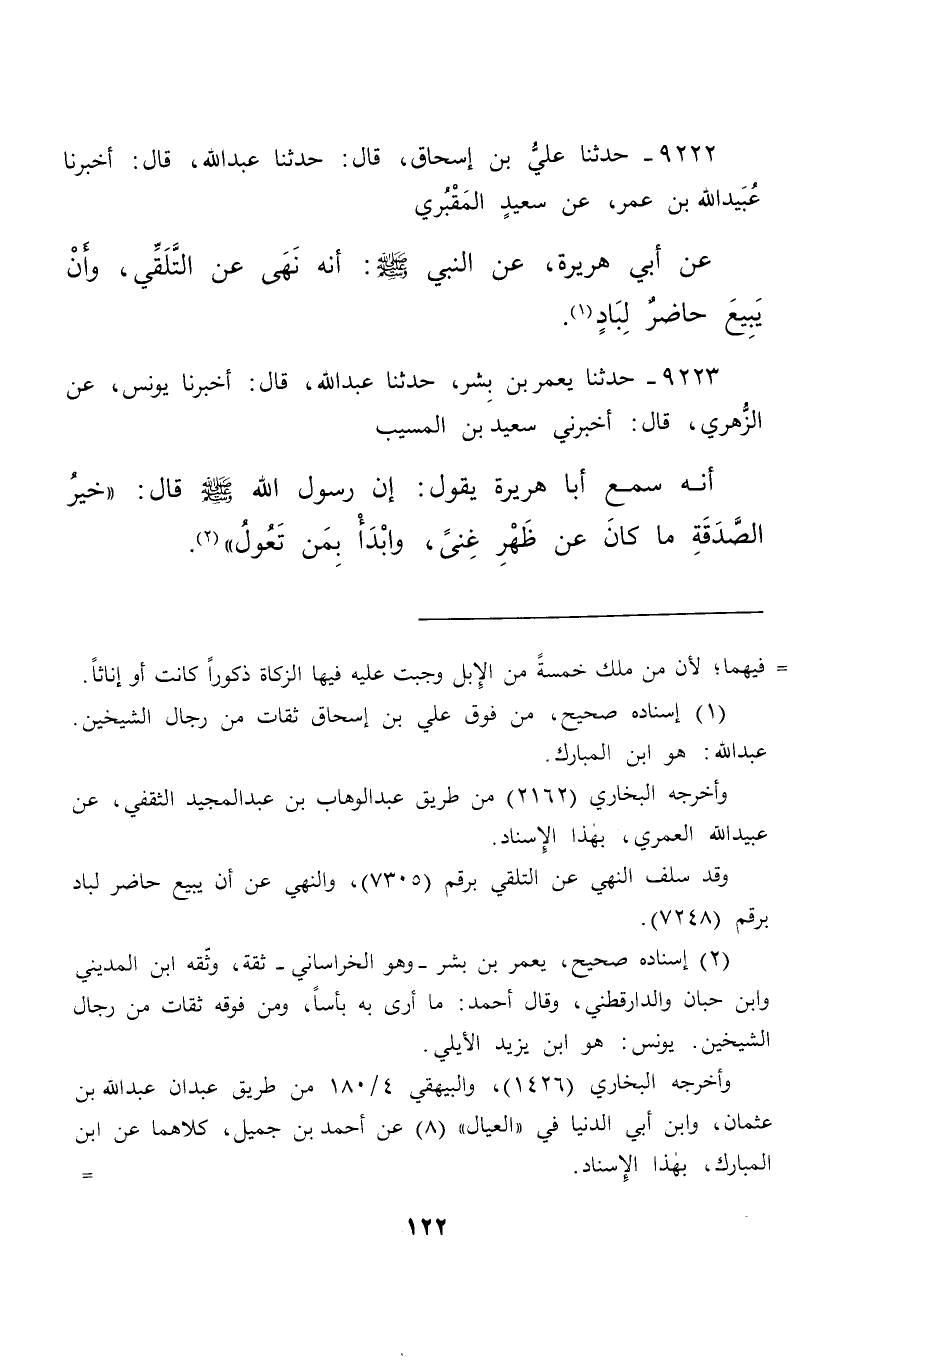 ٩٢٢٢ـ حدثنا عليُّ بن إسحاق، قال: حدثنا عبدالله، قال: أخبرنا
عُبَيدالله بن عمر، عن سعيدٍ المَقْبُري
عن أبي هريرة، عن النبي ﷺ: أنه نَهَى عن التَّلَقِّي، وأَنْ
يَبِيعَ حاضرٌ لِبَادٍ(١).
٩٢٢٣ـ حدثنا يعمر بن بِشر، حدثنا عبدالله، قال: أخبرنا يونس، عن
الزُّهري، قال: أخبرني سعيد بن المسيب
أنـه سمـع أبا هريرة يقول: إن رسول الله ﷺ قال: «خيرُ
الصَّدَقَةِ ما كانَ عن ظَهْرِ غِنىً، وابْدَأْ بِمَن تَعُولُ»(٢).
= فيهما؛ لأن من ملك خمسةً من الإِبل وجبت عليه فيها الزكاة ذكوراً كانت أو إناثاً.
(١) إسناده صحيح، من فوق علي بن إسحاق ثقات من رجال الشيخين.
عبدالله: هو ابن المبارك.
وأخرجه البخاري (٢١٦٢) من طريق عبدالوهاب بن عبدالمجيد الثقفي، عن
عبيدالله العمري، بهٰذا الإِسناد.
وقد سلف النهي عن التلقي برقم (٧٣٠٥)، والنهي عن أن يبيع حاضر لباد
برقم (٧٢٤٨).
(٢) إسناده صحيح، يعمر بن بشر ـ وهو الخراساني ـ ثقة، وثّقه ابن المديني
وابن حبان والدارقطني، وقال أحمد: ما أرى به بأساً، ومن فوقه ثقات من رجال
الشيخين. يونس: هو ابن يزيد الأيلي.
وأخرجه البخاري (١٤٢٦)، والبيهقي ٤/ ١٨٠ من طريق عبدان عبدالله بن
عثمان، وابن أبي الدنيا في «العيال» (٨) عن أحمد بن جميل، كلاهما عن ابن
المبارك، بهٰذا الإِسناد. =
١٢٢